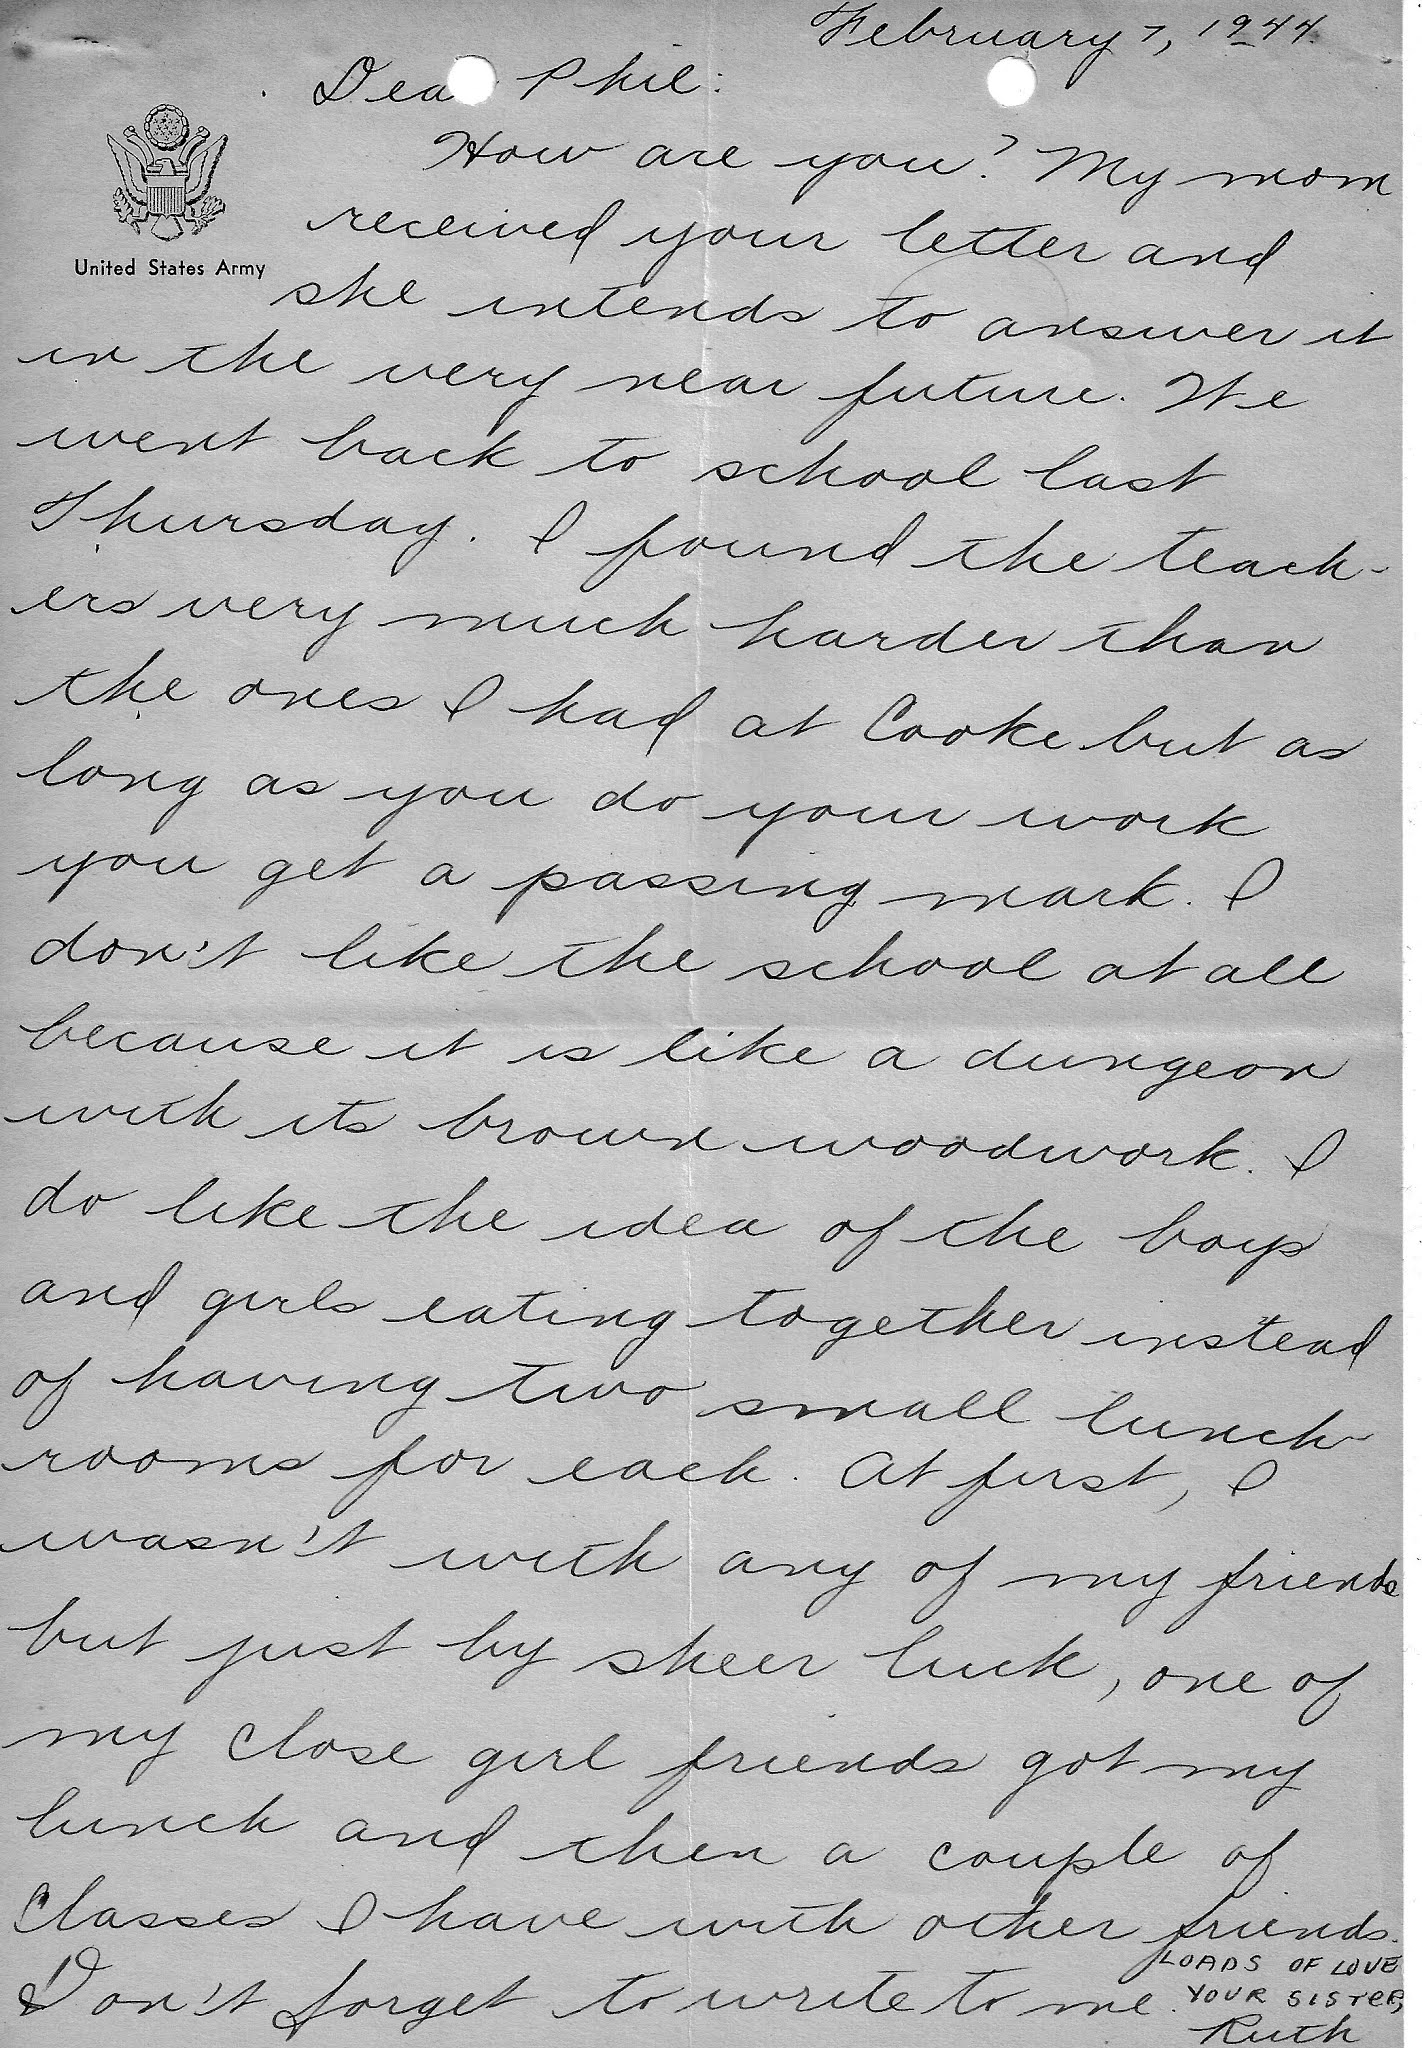 February 7, 1944.
Dear Phil:
How are you? My mom
received your letter and
United States Army
she intends to answer it
in the very near future. We
went back to school last
Thursday. I found the teach-
ers very much harder than
the ones I had at Cooke but as
long as you do your work
you get a passing mark. I
don't like the school at all
because it is like a dungeon
with its brown woodwork. I
do like the idea of the boys
and girls eating together instead
of having two small lunch
rooms for each. At first, I
wasn't with any of my friends
but just by sheer luck, one of
my close girl friends got my
lunch and then a couple of
classes I have with other friends.
Don't forget to write to me.
LOADS OF LOVE
YOUR SISTER,
Ruth